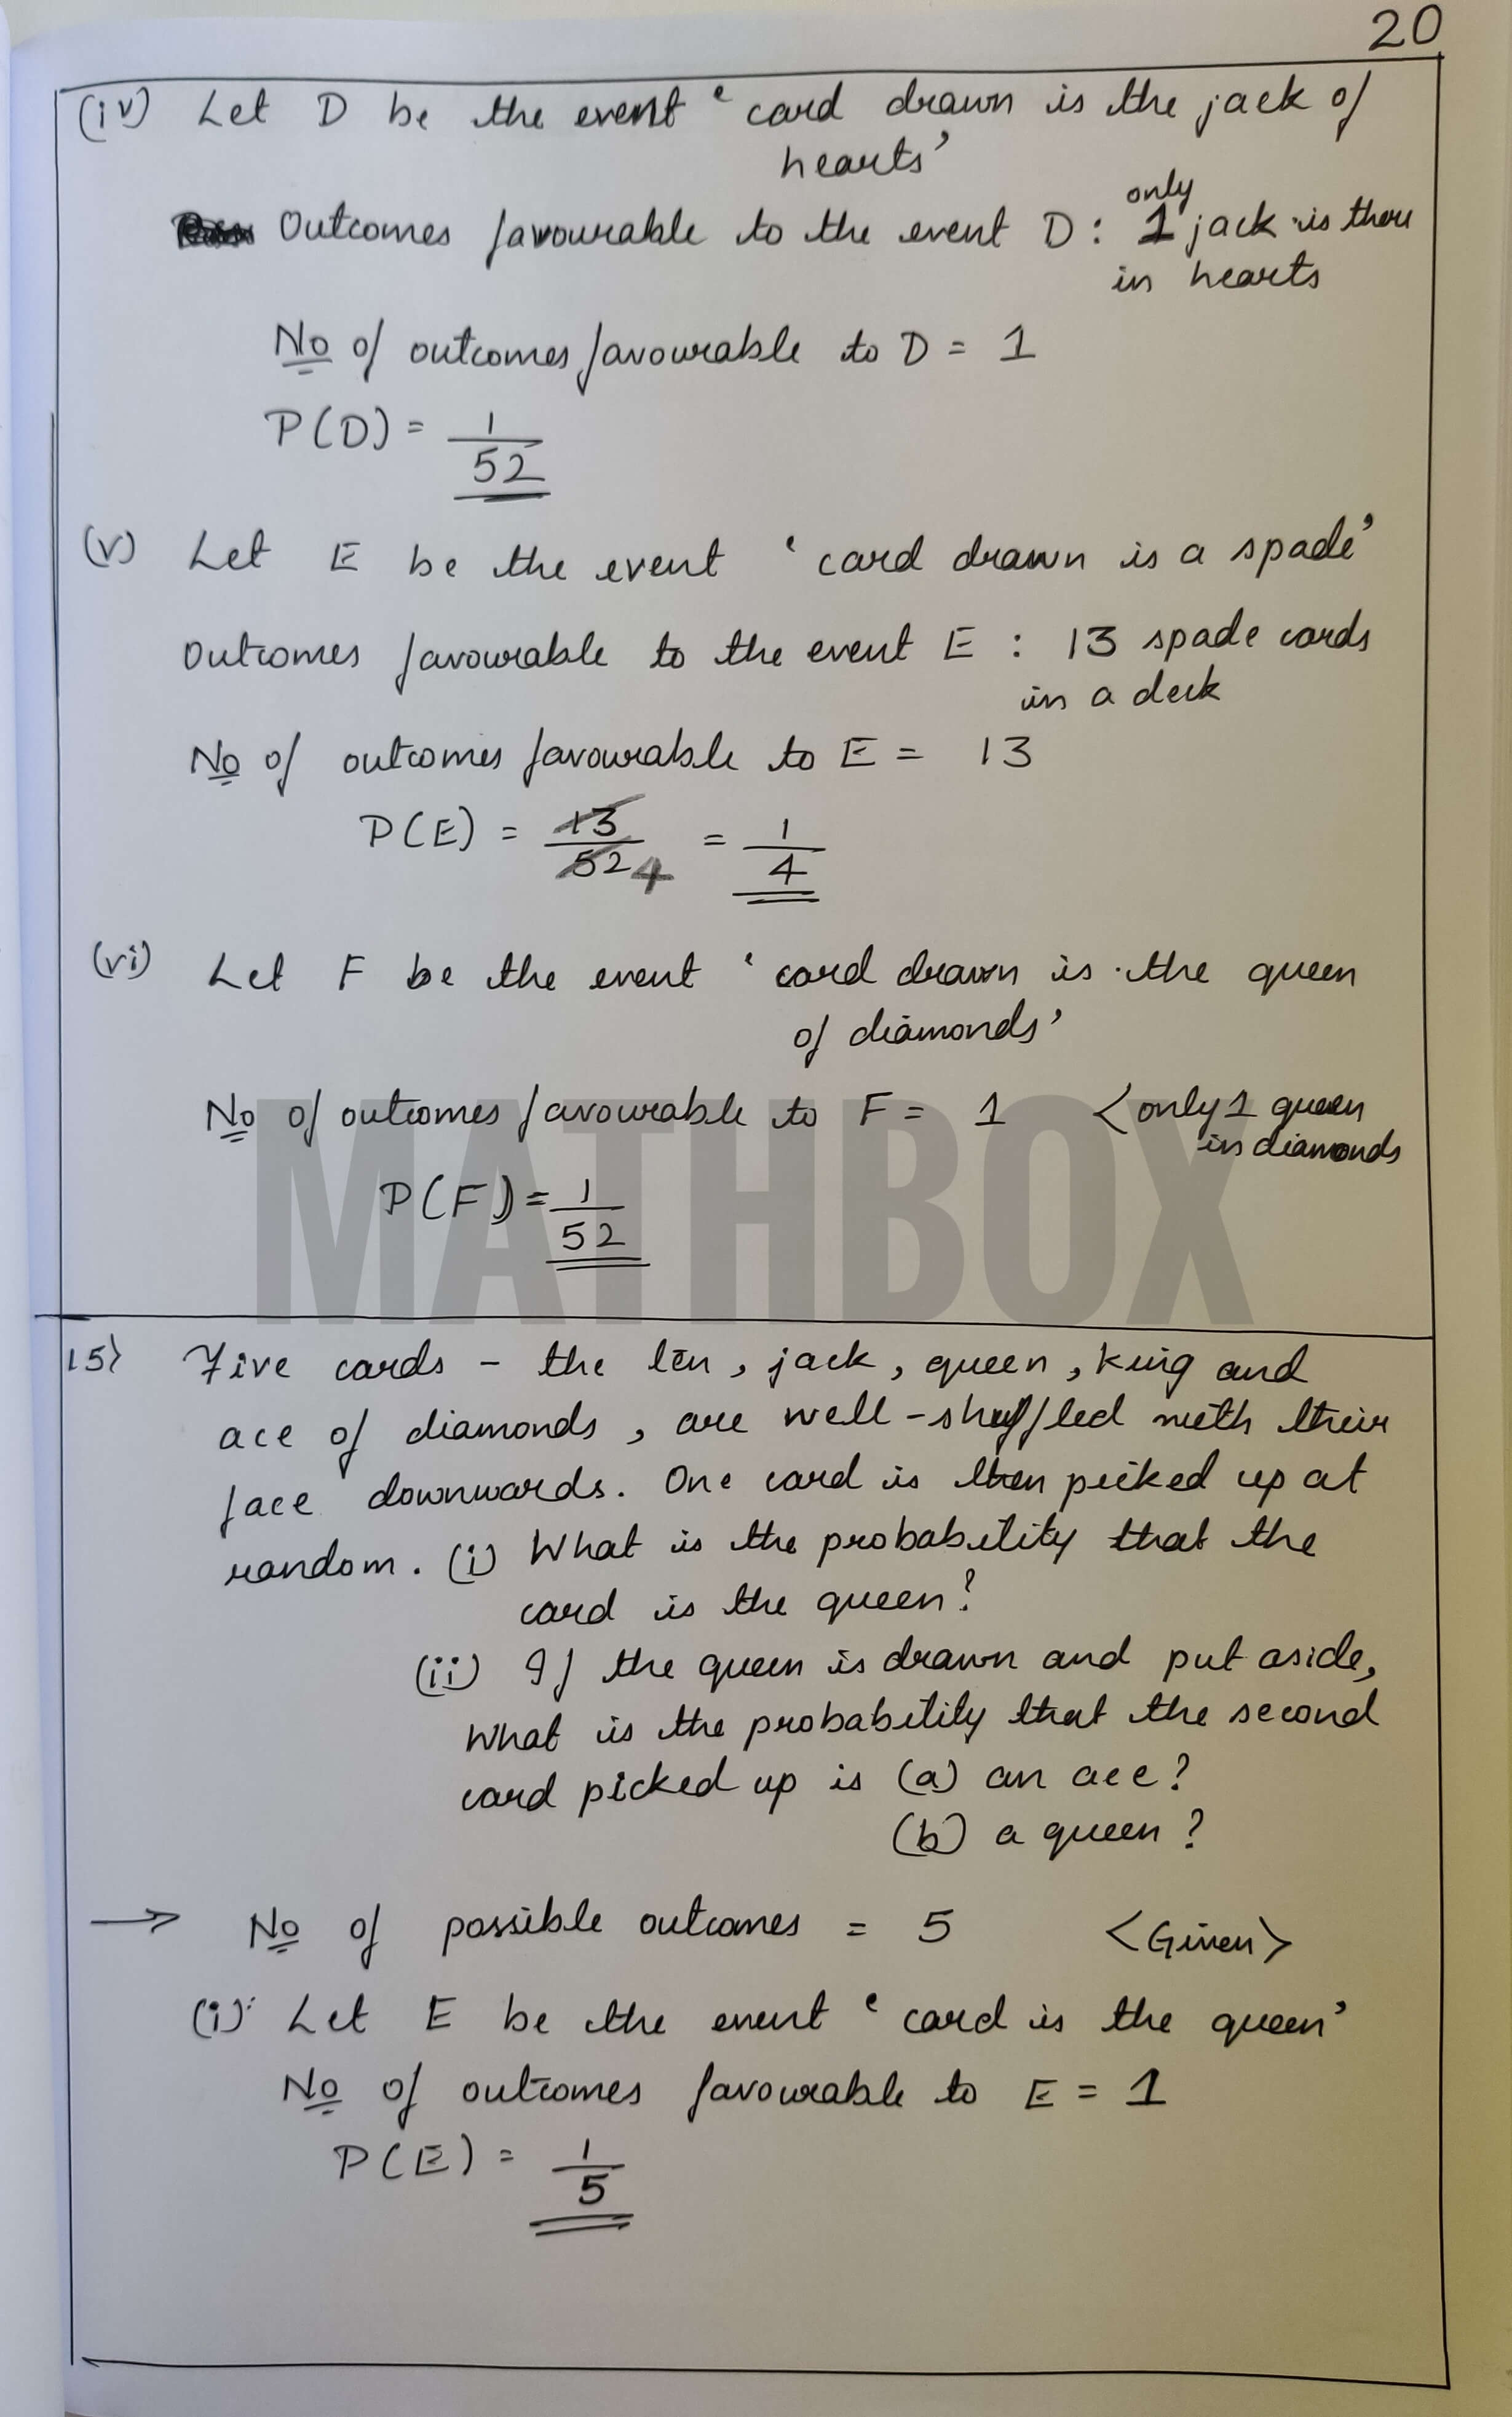 20
(iv) Let D be the event ‘card drawn is the jack of
hearts’
only
Outcomes favourable to the event D : 1 jack is there
in hearts
No of outcomes favourable to D = 1
P(D) = 1/52
(v) Let E be the event ‘card drawn is a spade’
Outcomes favourable to the event E : 13 spade cards
in a deck
No of outcomes favourable to E = 13
P(E) = 13/52 4 = 1/4
(vi) Let F be the event ‘card drawn is the queen
of diamonds’
No of outcomes favourable to F = 1 <only 1 queen
in diamonds
P(F) = 1/52
MATHBOX
15> Five cards - the ten, jack, queen, king and
ace of diamonds, are well-shuffled with their
face downwards. One card is then picked up at
random. (i) What is the probability that the
card is the queen?
(ii) If the queen is drawn and put aside,
What is the probability that the second
card picked up is (a) an ace?
(b) a queen?
→ No of possible outcomes = 5 <Given>
(i) Let E be the event ‘card is the queen’
No of outcomes favourable to E = 1
P(E) = 1/5